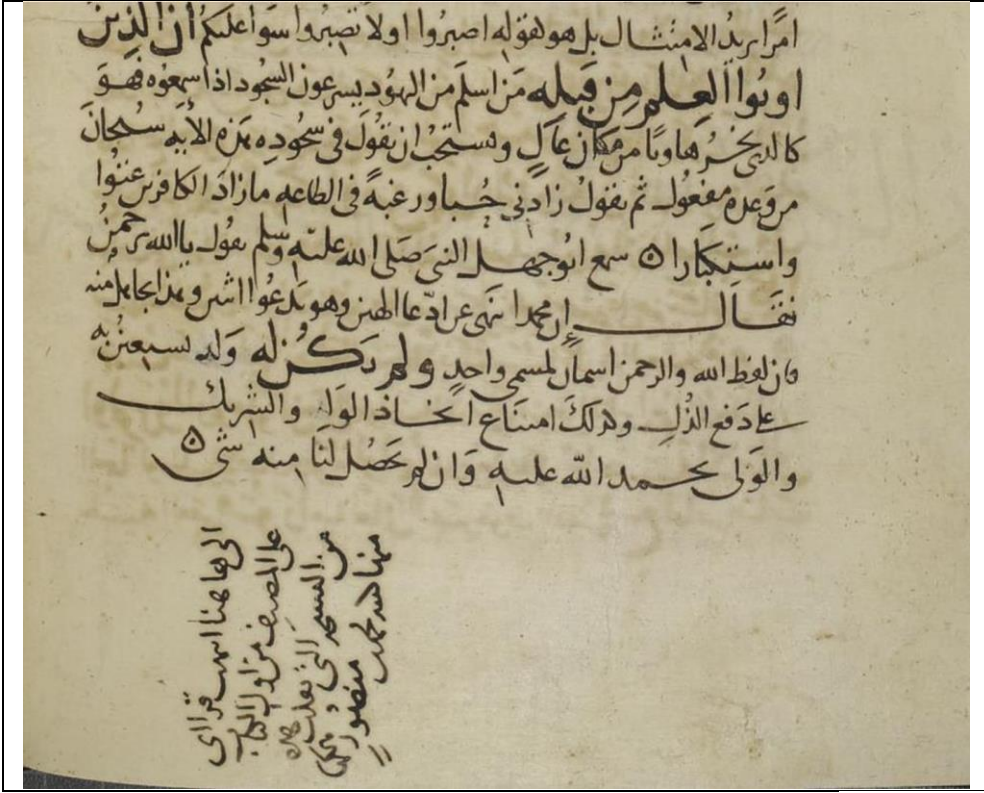 امرا يريد الامتثال بل هو لقوله اصبروا اولا تصبروا سوا عليكم ان الذين
اوتوا العلم من قبله من اسلم من اليهود يسرعون السجود اذا سمعوه فهو
كالذى يخر هاويا من مكان عال ويستحب ان يقول فى سجوده بهذه الآيه سبحان
من وعده مفعول ثم يقول زادنى حبا ورغبة فى الطاعه ما زاد الكافرين عتوا
واستكبارا ه سمع ابو جهل النبى صلى الله عليه وسلم يقول يا الله يا رحمن
فقال إن محمدا نهى عن ادعا الهين وهو يدعوا اثنين وهذا جهل منه
فان لفظ الله والرحمن اسمان لمسمى واحد ولم يكن له ولد يستعين به
على دفع الذل وكذلك امتناع اتخاذ الولد والشريك
والولى يحمد الله عليه وان لم يحصل لنا منه شى ه
الى هاهنا انتهت قراءى
على المصنف من اول الكتاب
من النسخه التى نقلت هذه
منها